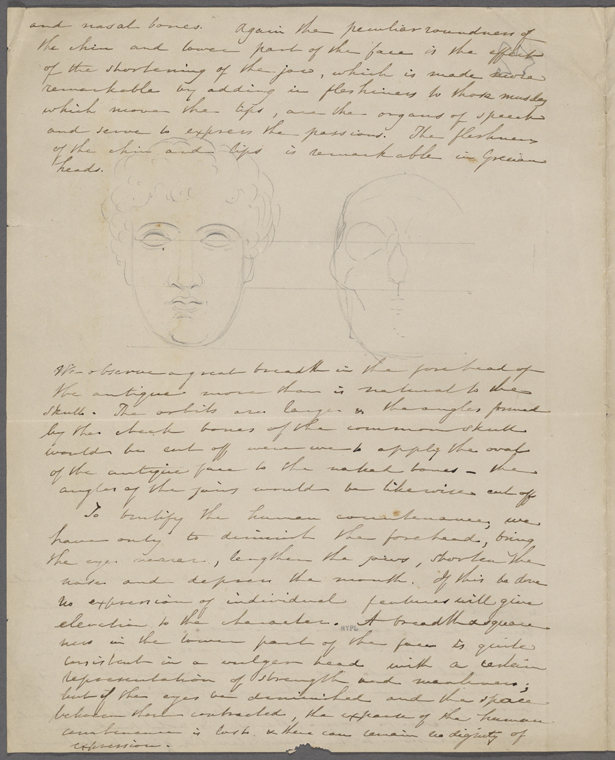 and nasal bones. Again the peculiar roundness of
the chin and lower part of the face is the effect
of the shortening of the jaw, which is made more
remarkable by adding in fleshiness to those muscles
which move the lips, are the organs of speech
and serve to express the passions. The fleshiness
of the chin and lips is remarkable in Grecian
heads.
We observe a great breadth in the forehead of
the antique more than is natural to the
skull. The orbits are larger & the angles formed
by the cheek bones of the common skull
would be cut off were we to apply the oval
of the antique face to the naked bones – the
angles of the jaws would be likewise cut off
To brutify the human countenance, we
have only to diminish the forehead, bring
the eyes nearer, lengthen the jaws, shorten the
nose and depress the mouth. If this be done
no expression of individual features will give
elevation to the character. A breadth & square
ness in the lower part of the face is quite
consistent in a vulgar head with a certain
representation of strength and meanness;
but if the eyes be diminished and the space
between them contracted, the of the human
countenance is lost & there can remain no dignity of
expression.
NYPL